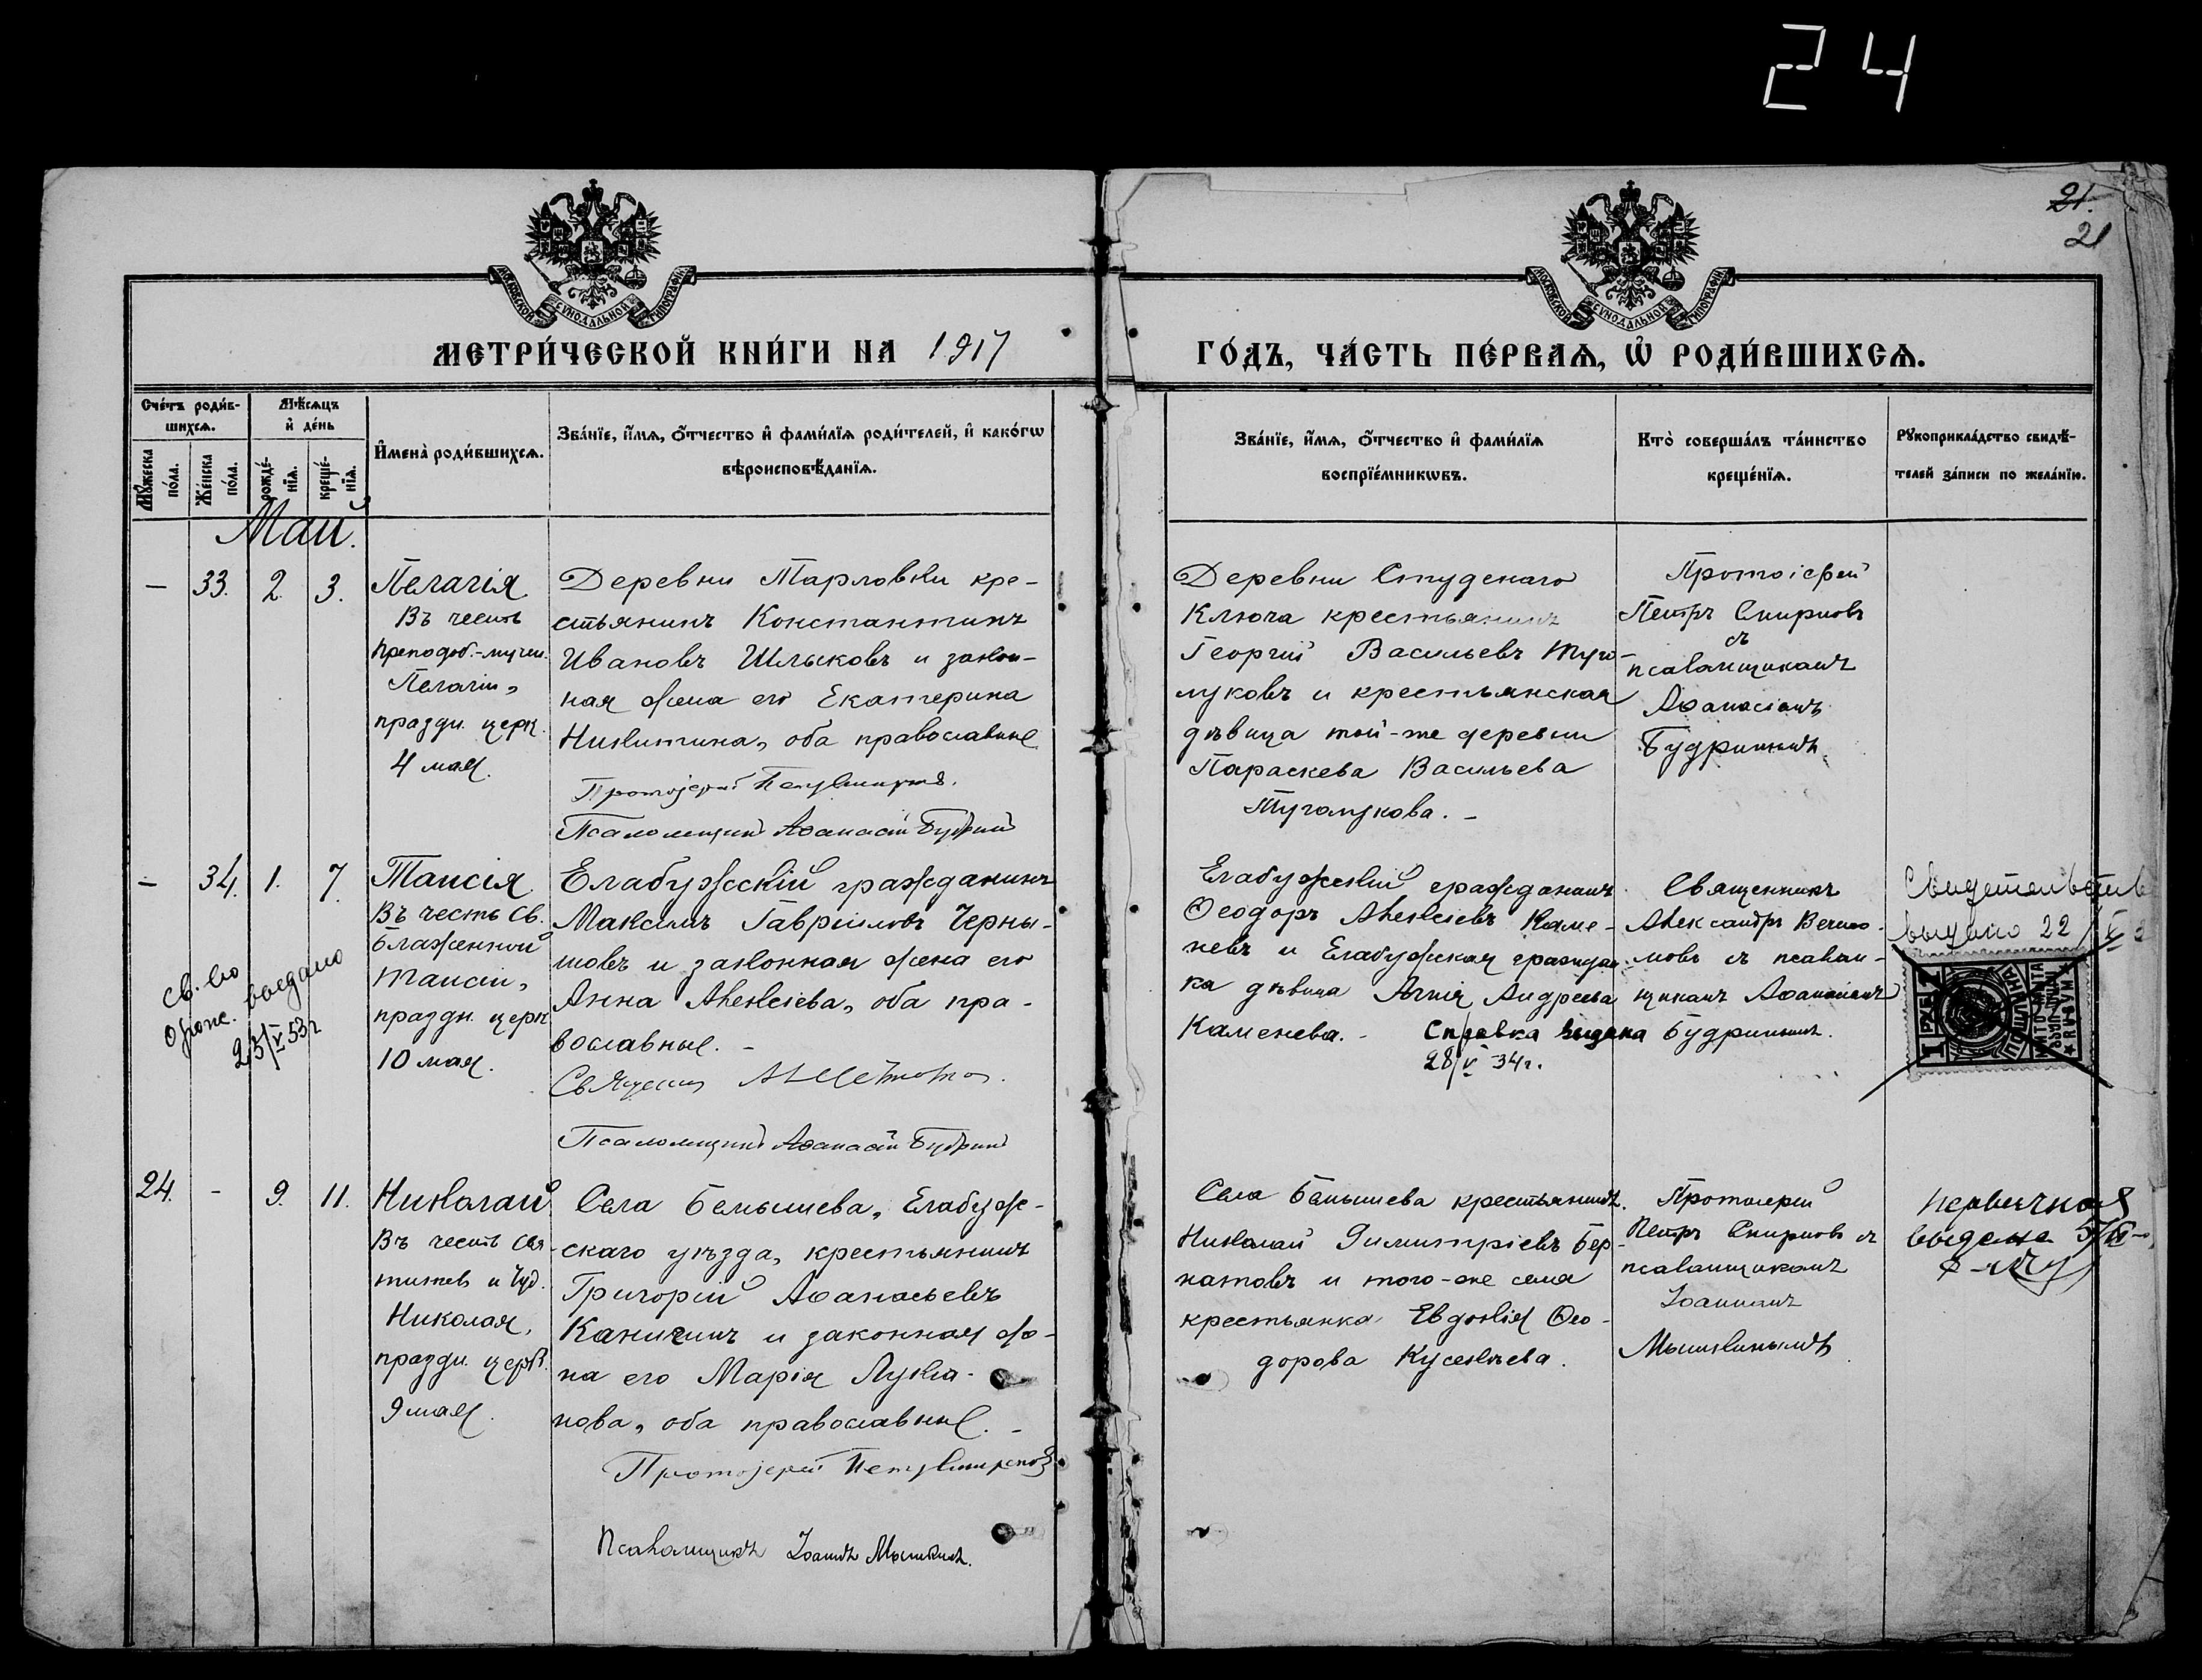 24
21.
21
МОСКОВСКОЙ СѴНОДАЛЬНОЙ ТИПОГРАФІИ
МОСКОВСКОЙ СѴНОДАЛЬНОЙ ТИПОГРАФІИ
МЕТРИ́ЧЕСКОЙ КНИ́ГИ НА 1917
ГО́ДЪ, ЧА́СТЬ ПЕ́РВАѦ, Ѡ҆ РОДИ́ВШИХСѦ.
Сче́тъ роди́в-
шихсѧ.
Мѣ́сѧцъ
и҆ де́нь
Мꙋ́жеска
по́ла.
Же́нска
по́ла.
рожде́-
нїѧ.
креще́-
нїѧ.
И҆мена̀ роди́вшихсѧ.
Зва́нїе, и҆́мѧ, о҆́тчество и҆ фами́лїѧ роди́телей, и҆ како́гѡ
вѣроисповѣ́данїѧ.
Зва́нїе, и҆́мѧ, о҆́тчество и҆ фами́лїѧ
воспрїе́мникѡвъ.
Кто̀ соверша́лъ та́инство
креще́нїѧ.
Рꙋкоприкла́дство свидѣ́-
телей за́писи по жела́нїю.
Май.
— 33. 2. 3.
Пелагія
Въ честь
преподоб.-мучен.
Пелагіи,
праздн. церк.
4 мая.
Деревни Тарловки кре-
стьянинъ Константинъ
Ивановъ Шлыковъ и закон-
ная жена его Екатерина
Никитина, оба православные
Протоіерей Петръ Смирновъ.
Псаломщикъ Аѳанасій Будринъ
Деревни Студенаго
Ключа крестьянинъ
Георгій Васильевъ Туго-
луковъ и крестьянская
дѣвица той-же деревни
Параскева Васильева
Туголукова. –
Протоіерей
Петръ Смирновъ
съ
псаломщикомъ
Аѳанасіемъ
Будринымъ.
— 34. 1. 7.
Таисія
Въ честь св.
блаженной
Таисіи,
праздн. церк.
10 мая.
св-во
выдано
23/V 53 г
Елабужскій гражданинъ
Максимъ Гавріиловъ Черны-
шовъ и законная жена его
Анна Алексіева, оба пра-
вославные. –
Священникъ
Псаломщикъ Аѳанасій Будринъ
Елабужскій гражданинъ
Ѳеодоръ Алексіевъ Каме-
невъ и Елабужская граждан-
ка дѣвица Агнія Андреева
Каменева. –
Справка выдана
28/V 34 г.
Священникъ
Александръ
съ псалом-
щикомъ Аѳанасіемъ
Будринымъ.
Свидетельство
выдано 22/V
24. - 9. 11.
Николай
Въ честь Свя-
тителя и Чуд.
Николая,
праздн. церк.
9 мая.
Села Бемышева, Елабуж-
скаго уѣзда, крестьянинъ
Григорій Аѳанасьевъ
Каничинъ и законная же-
на его Марія Лукіа-
нова, оба православные. –
Протоіерей Петръ Смирновъ
Псаломщикъ Іоаннъ Мышкинъ.
Села Бемышева крестьянинъ
Николай Димитріевъ Бер-
натовъ и того-же села
крестьянка Евдокія Ѳео-
дорова Кусекѣева.
Протоіерей
Петръ Смирновъ съ
псаломщикомъ
Іоанномъ
Мышкинымъ
первичная
выдана